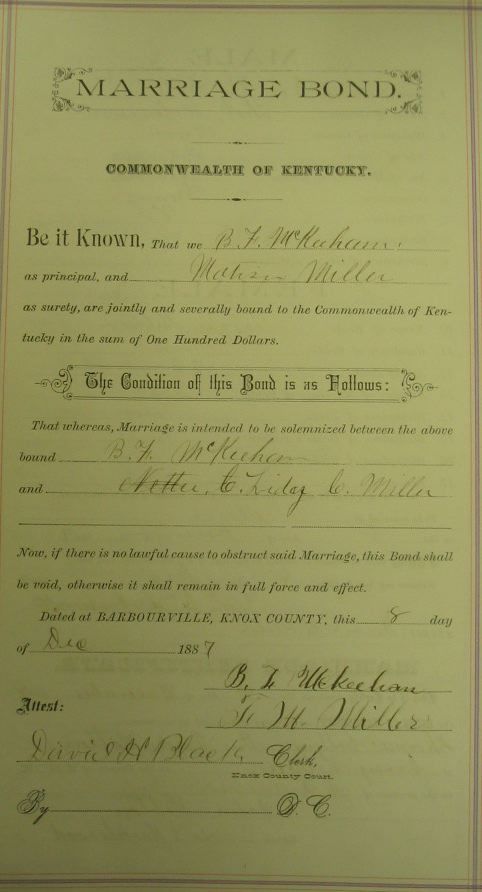 MARRIAGE BOND.
COMMONWEALTH OF KENTUCKY.
Be it Known, That we B. F. McKeehan
as principal, and Miller
as surety, are jointly and severally bound to the Commonwealth of Ken-
tucky in the sum of One Hundred Dollars.
The Condition of this Bond is as Follows:
That whereas, Marriage is intended to be solemnized between the above
bound B. F. McKeehan
and C. Miller
Now, if there is no lawful cause to obstruct said Marriage, this Bond shall
be void, otherwise it shall remain in full force and effect.
Dated at BARBOURVILLE, KNOX COUNTY, this 8 day
of Dec 1887
B. F. McKeehan
Attest:
F. M. Miller
David H Black Clerk,
Knox County Court.
By D. C.